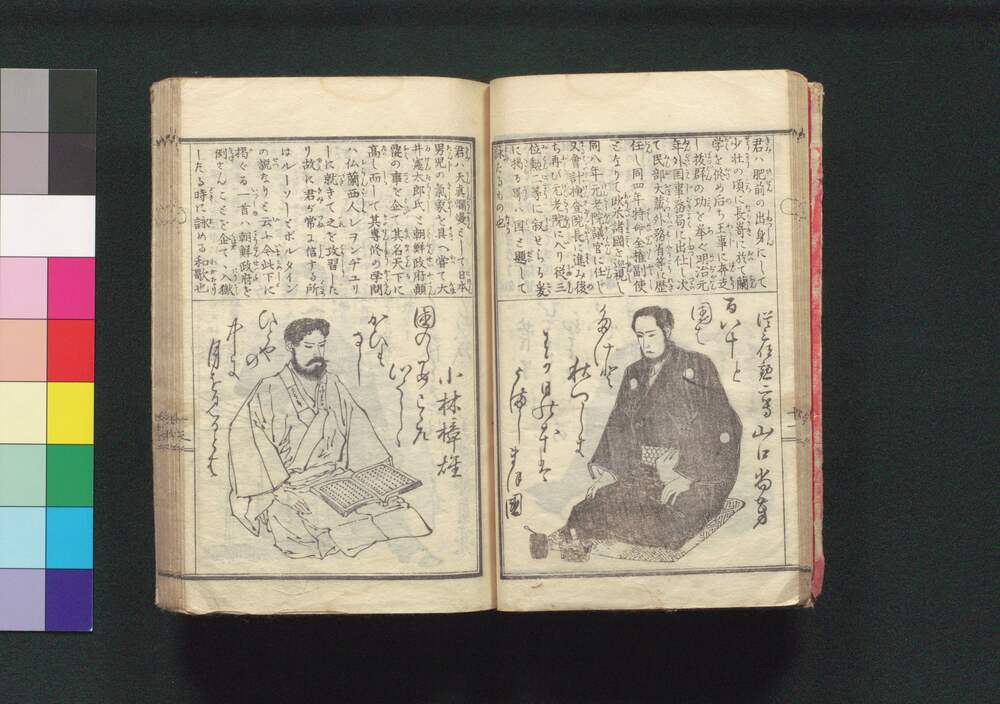 君ハ肥前の出身にして
少壮の頃に長崎に於て蘭
学を修め后ち王事に奔走
し抜群の功を挙ぐ明治元
年外国事務局に出仕し次
て民部大蔵外務省等に歴
任し同四年特命全権副使
となりて欧米諸国を巡視し
同八年元老院議官に任じ
又會計検査院長に進み後
ち再び元老院に入り従三
位勲二等に叙せらる爰
に掲る哥ハ国を題して
詠たるもの也
従三位勲二等山口尚芳
百八十と
国は
あれと
秋つしま
わか日の本は
うまし国
君ハ天真爛漫として日本
男児の気象を具へ嘗て大
井憲太郎氏と朝鮮政府顛
覆の事を企て其名天下に
高し而して其専修の学問
ハ仏蘭西人レヲンヂユリ
ーに就きて之を攻習した
り故に君が常に信する所
はルーソーとボルタイン
の説なりと云ふ今此下に
掲ぐる一首ハ朝鮮政府を
倒さんことを企て、入獄
したる時に詠める和歌也
小林樟雄
国の
ひとやの
月を